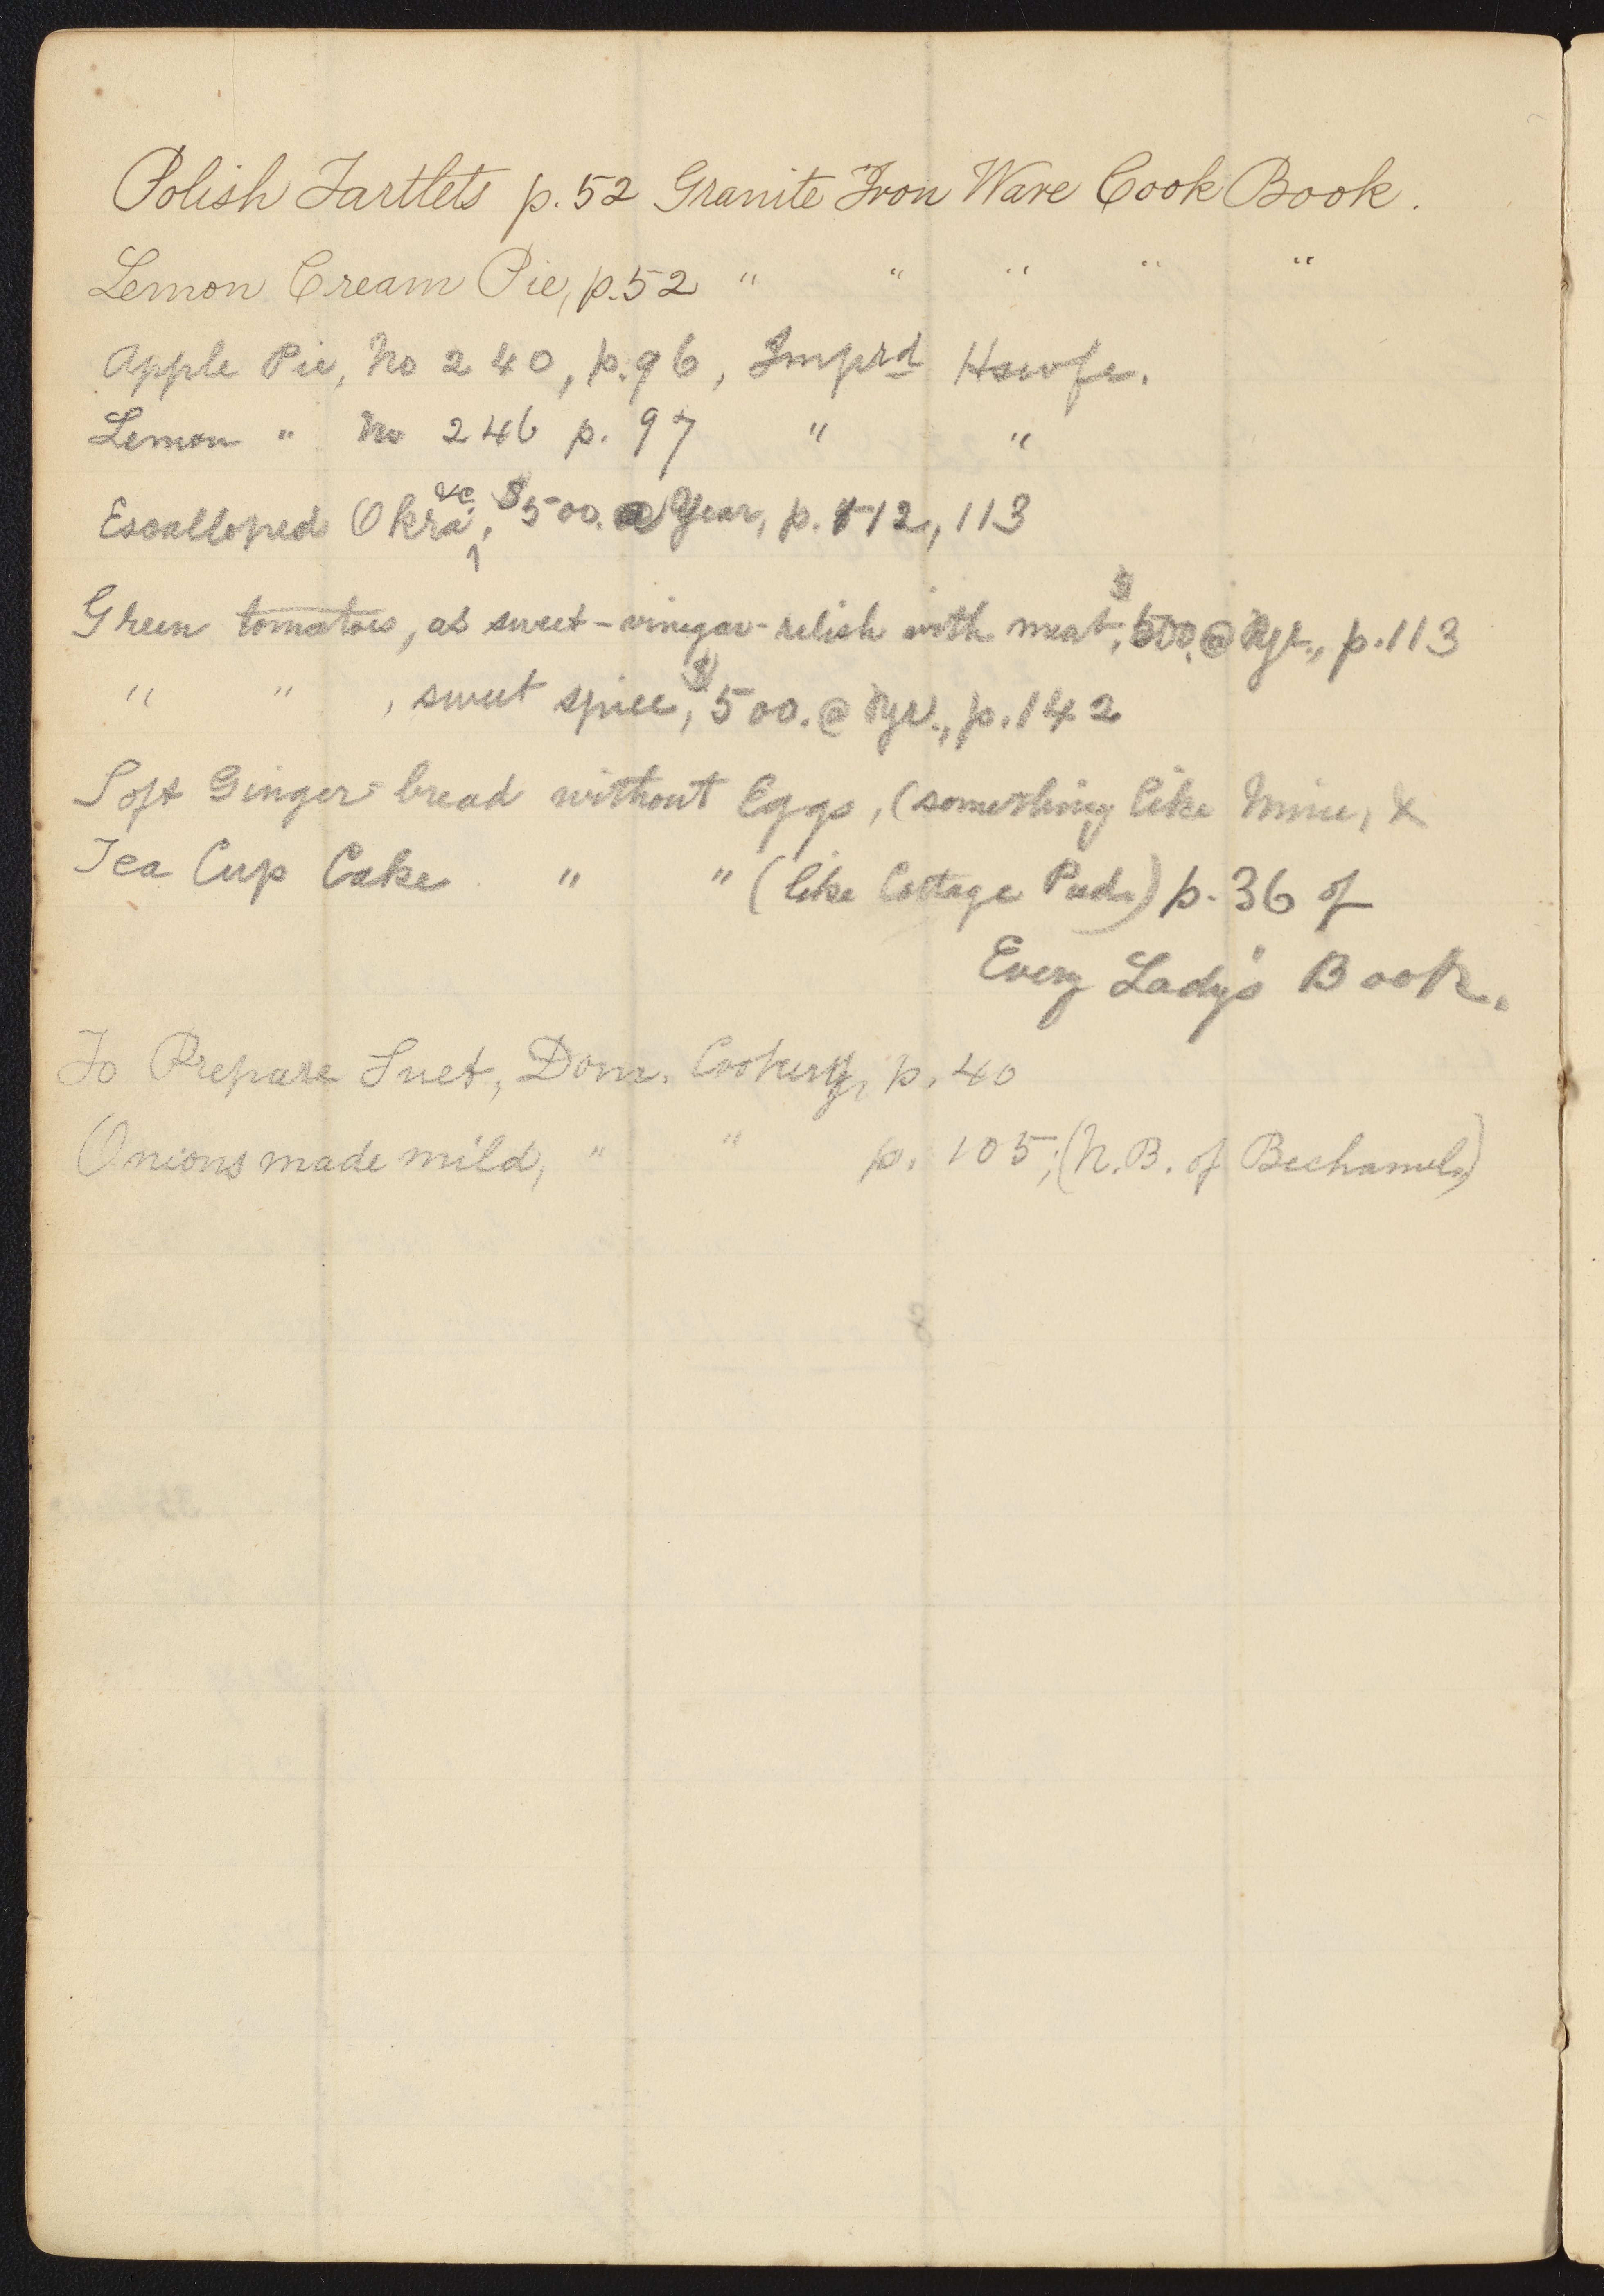 Polish Tartlets p. 52 Granite Iron Ware Cook Book.
Lemon Cream Pie, p. 52 " " " " "
Apple Pie, No 240, p. 96, Imprd Hswfe.
Lemon " No 246 p. 97 " "
Escalloped Okra &c, $500. a Year, p. 112, 113
Green tomatoes, as sweet-vinegar-relish with meat, $500. @ yr., p. 113
" " , sweet spice, $500. @ yr., p. 142
Soft Ginger-bread without Eggs, (something like Mine, &
Tea Cup Cake " " (like Cottage Pud.) p. 36 of
Every Lady's Book.
To Prepare Suet, Dom. Cookery, p. 40
Onions made mild, " " p. 105; (N.B. of Bechamel.)